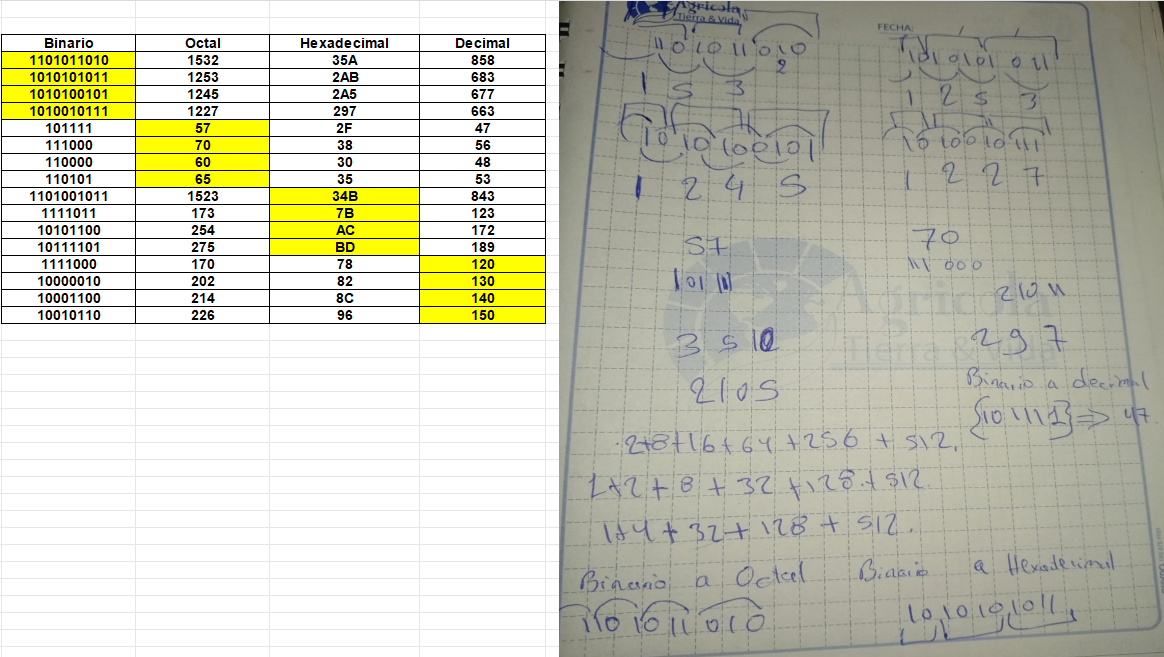 Binario Octal Hexadecimal Decimal
1101011010 1532 35A 858
1010101011 1253 2AB 683
1010100101 1245 2A5 677
1010010111 1227 297 663
101111 57 2F 47
111000 70 38 56
110000 60 30 48
110101 65 35 53
1101001011 1523 34B 843
1111011 173 7B 123
10101100 254 AC 172
10111101 275 BD 189
1111000 170 78 120
10000010 202 82 130
10001100 214 8C 140
10010110 226 96 150
Agrícola
Tierra & Vida
FECHA:
11 01 011 010
2
1 5 3
1 2 5 3
10 10 100 101
10 100 10 111
1 2 4 5
1 2 2 7
57
70
101 111
111 000
2 10 11
Agrícola
Tierra & Vida
3 5 10
2 9 7
2 10 5
Binario a decimal
{101111} => 47
2+8+16+64+256+512.
1+2+8+32+128+512
1+4+32+128+512.
Binario a Octal
Binario a Hexadecimal
110 1011 010
10 1010 1011